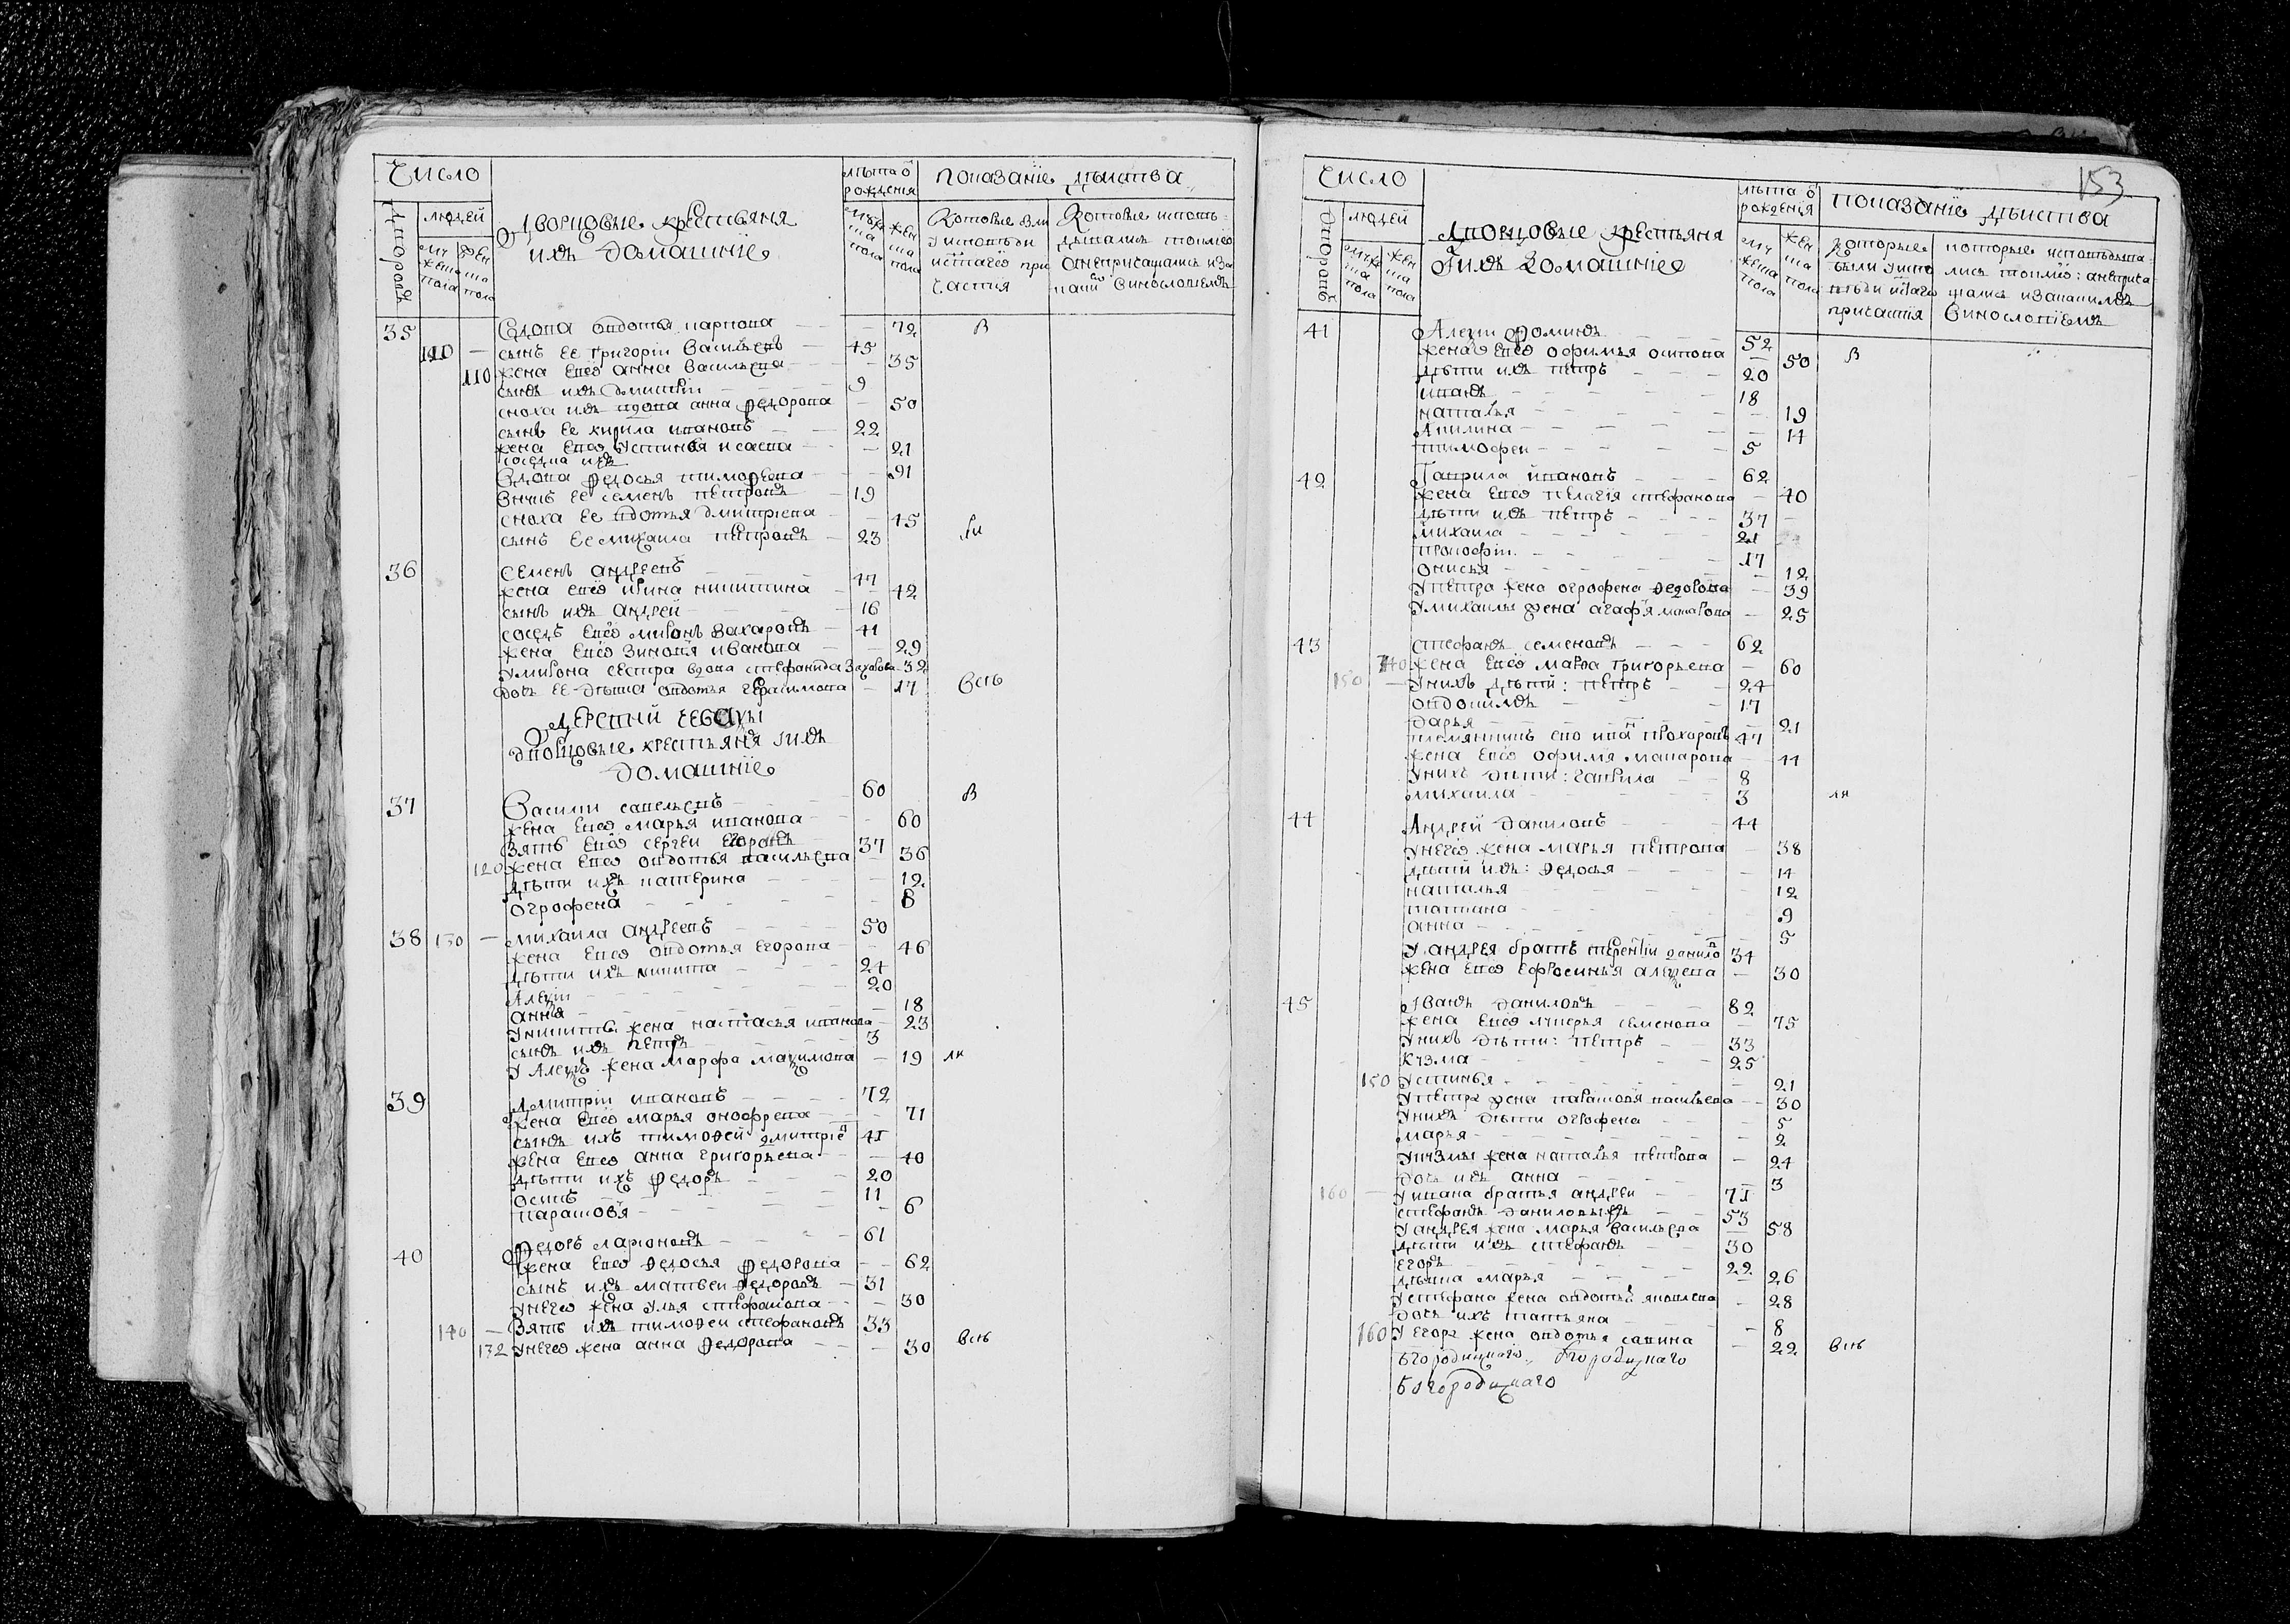 Число
людей
Дворовъ
Му жеска пола
Жен ска пола
Дворцовые крестьяня
и ихъ домашние
лѣта ѿ рождения
Муже ска пола
Жен ска пола
показание дѣиства
Которые были у исповѣди и стаго причастия
Которые исповѣдывались токмо а не причащались и за какимъ винословиемъ
35 Вдова овдотья карпова — 72 в
110 — сынъ ее григорiи васильевъ — 45
110 жена ево анна васильева — 35
сынъ ихъ дмитрiи — 9
сноха ихъ вдова анна федорова — 50
сынъ ее кирила ивановъ — 22
жена ево устинья исаева — 21
соседка ихъ
вдова федосья тимофеева — 91
внукъ ее семенъ петровъ — 19
сноха ее овдотья дмитриева — 45
сынъ ее михаила петровъ — 23
36 Семенъ андреевъ — 47
жена ево ирина никитина — 42
сынъ ихъ андрей — 16
соседъ ево миронъ захаровъ — 41
жена ево зиновiя иванова — 29
у мирона сестра вдова стефанида Захарова 32
дочь ее девка овдотья герасимова — 17
деревни
дворцовые крестьяня и ихъ
домашнiе
37 Василии савельевъ — 60 в
жена ево марья иванова — 60
зять ево сергеи егоровъ — 37
120 жена ево овдотья васильева — 36
дѣти ихъ катерина — 12
огрофена — 8
38 130 — михаила андреевъ — 50
жена ево овдотья егорова — 46
дѣти ихъ никита — 24
алеѯiи — 20
анна — 18
у никиты жена настасья иванова — 23
сынъ ихъ петръ — 3
у алеѯѣя жена марфа маѯимова — 19
39 дмитрiи ивановъ — 72
жена ево марья онофреева — 71
сынъ ихъ тимофей дмитрiе в 41
жена ево анна григорьева — 40
дѣти ихъ федоръ — 20
осипъ — 11
парасковья — 6
40 федоръ ларионовъ — 61
жена ево федосья федорова — 62
сынъ ихъ матвеи федоровъ — 31
у него жена улья стефанова — 30
140 — зять ихъ тимофеи стефановъ 33
132 у него жена анна федорова — 30
153
Число
людей
Дворовъ
муже ска пола
жен ска пола
Дворцовые крестьяня
и ихъ домашние
лѣта ѿ рождения
му жеска пола
жен ска пола
показание дѣиства
которые были у исповѣди и стаго причастiя
которые исповѣдыва лись токмо: а не прича щались и за какимъ винословiемъ
41 Алеѯiи фоминъ — 52
жена ево офимья осипова — 50 в
дѣти ихъ петръ — 20
иванъ — 18
наталья — 19
акилина — 14
тимофеи — 5
42 Гаврила ивановъ — 62
жена ево пелагiя стефанова — 40
дѣти ихъ петръ — 37
михаила — 21
прокофiи — 17
онисья — 12
у петра жена огрофена федорова — 39
у михаилы жена агафiя макарова — 25
43 стефанъ семеновъ — 62
140 жена ево марфа григорьева — 60
150 — у нихъ дѣти: петръ — 24
овдокимъ — 17
дарья — 21
племянникъ ево ива н прохоровъ 47
жена ево офимия макарова — 41
у нихъ дѣти: гаврила — 8
михаила — 3
44 Андрей даниловъ — 44
у него жена марья петрова — 38
дѣти ихъ: федосья — 14
наталья — 12
татьяна — 9
анна — 5
у андрея братъ терентiи данило в 34
жена ево ефросинья алеѯеева — 30
45 Иванъ даниловъ — 82
жена ево лукерья семенова — 75
у нихъ дѣти: петръ — 33
кузма — 25
150 устинья — 21
у петра жена парасковя васильева — 30
у нихъ дѣти огрофена — 5
марья — 2
у кузмы жена наталья петрова — 24
дочь ихъ анна — 3
160 — у ивана братья андреи — 71
стефанъ даниловы — 53
у андрея жена марья васильева — 58
дѣти ихъ стефанъ — 30
егоръ — 22
дѣвка марья — 26
у стефана жена овдотья яковлева — 28
дочь ихъ татьяна — 8
160 у егора жена овдотья савина — 22
богородицкаго, богородицкаго
богородицкаго